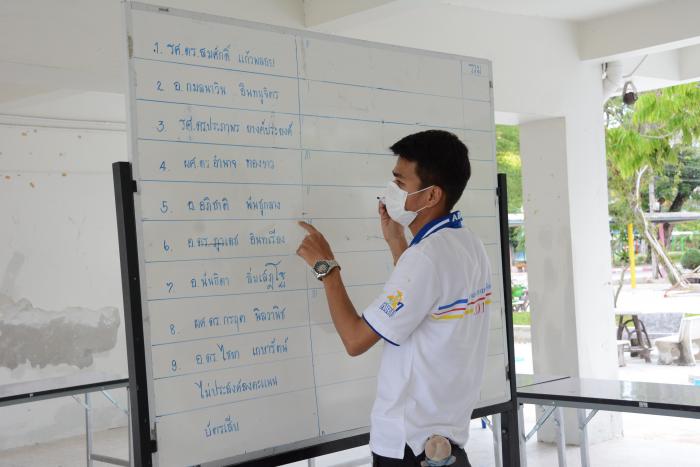 รวม
1. รศ.ดร.สมศักดิ์ แก้วพลอย
2 อ.กมลนาวิน อินทนูจิตร
3. รศ.ดรประภาพร ยางค์ประยงค์
4. ผศ.ดร อำพาจ ทองขาว
5. อ.อภิชาติ พันชูกลาง
6. อ.ดร.ภูเดช อินทเรือง
7. อ.นันธิดา ลิ่มเสฏโฐ
8. ผศ.ดร.กรฤต นิลวานิช
9. อ.ดร ไชยา เกษารัตน์
ไม่ประสงค์ลงคะแนน
บัตรเสีย